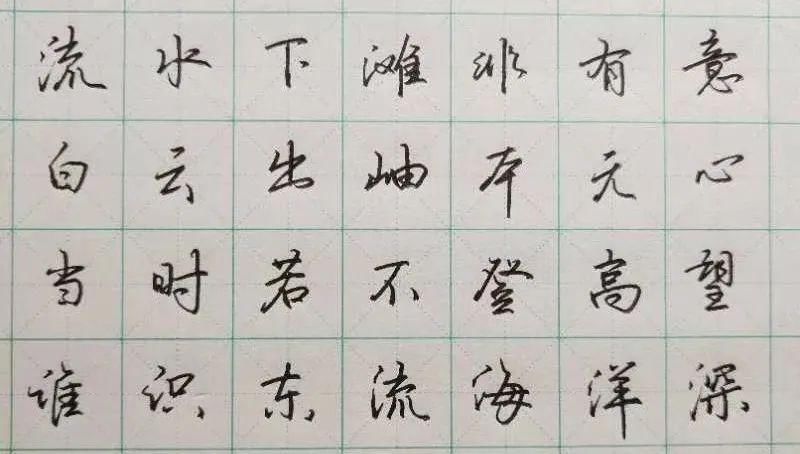 流水下滩非有意
白云出岫本无心
当时若不登高望
谁识东流海洋深